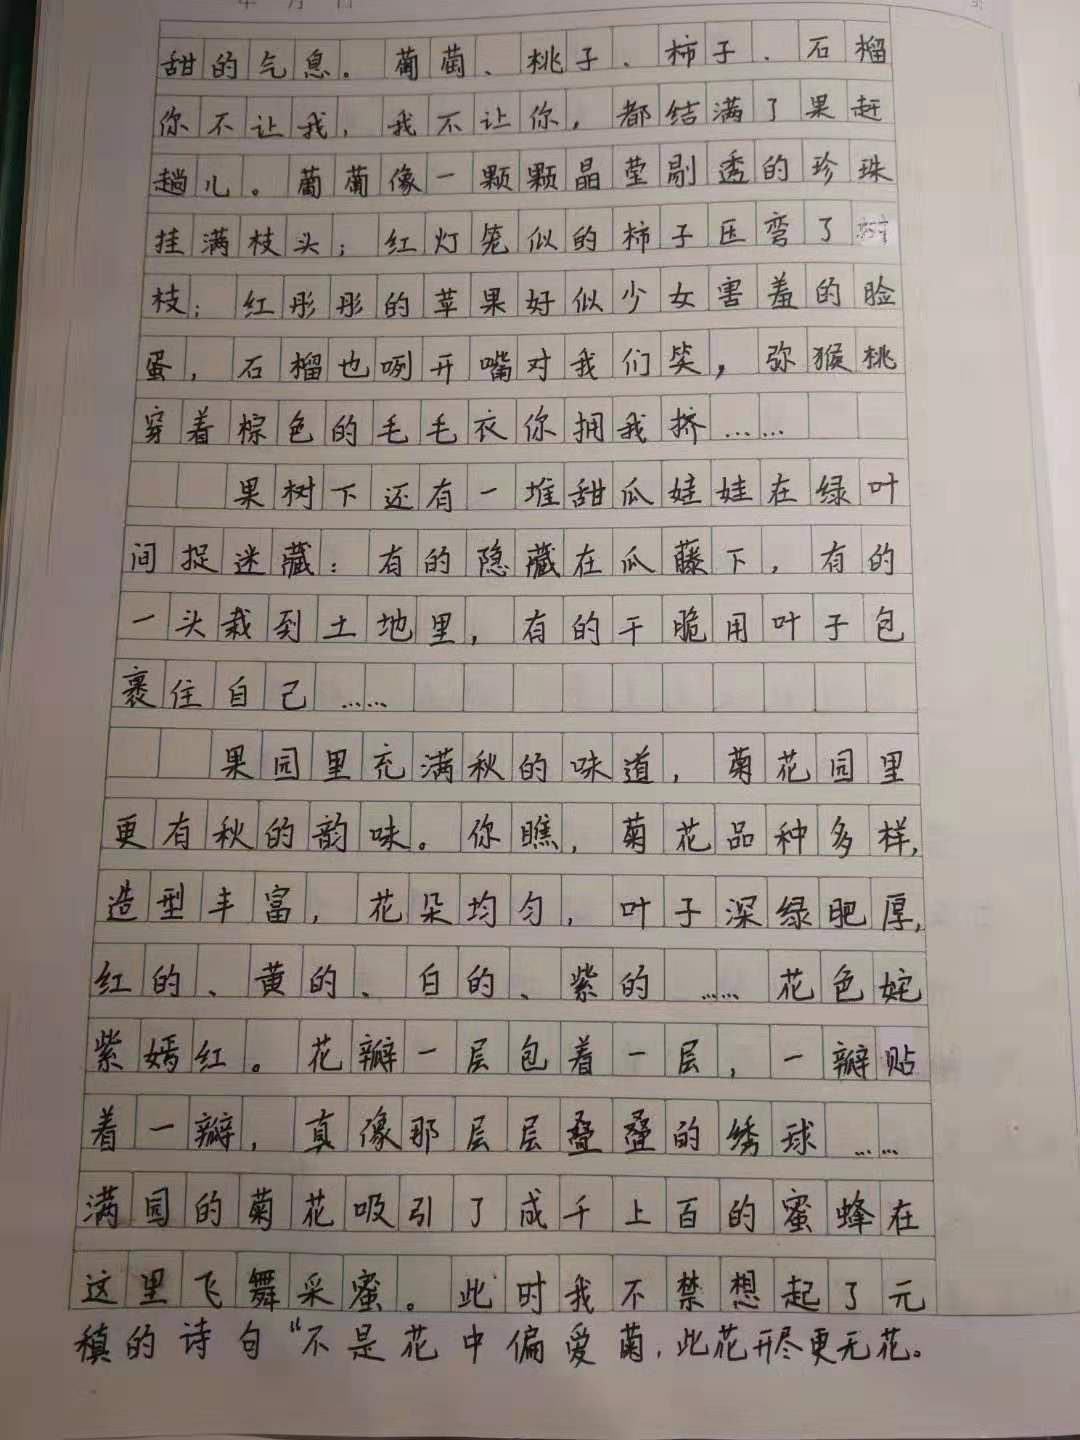 甜的气息。葡萄、桃子、柿子、石榴
你不让我，我不让你，都结满了果赶
趟儿。葡萄像一颗颗晶莹剔透的珍珠
挂满枝头；红灯笼似的柿子压弯了树
枝；红彤彤的苹果好似少女害羞的脸
蛋，石榴也咧开嘴对我们笑，弥猴桃
穿着棕色的毛毛衣你拥我挤……
果树下还有一堆甜瓜娃娃在绿叶
间捉迷藏：有的隐藏在瓜藤下，有的
一头栽到土地里，有的干脆用叶子包
裹住自己……
果园里充满秋的味道，菊花园里
更有秋的韵味。你瞧，菊花品种多样，
造型丰富，花朵均匀，叶子深绿肥厚，
红的、黄的、白的、紫的……花色姹
紫嫣红。花瓣一层包着一层，一瓣贴
着一瓣，真像那层层叠叠的绣球……
满园的菊花吸引了成千上百的蜜蜂在
这里飞舞采蜜。此时我不禁想起了元
稹的诗句“不是花中偏爱菊，此花开尽更无花。